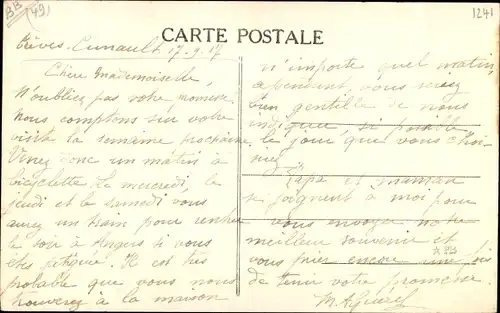 BB
491
1241
CARTE POSTALE
Trèves-Cunault 17-9-17
Chère Mademoiselle,
N'oubliez pas votre promesse!
Nous comptons sur votre
visite la semaine prochaine
Venez donc un matin à
bicyclette le mercredi, le
jeudi et le samedi vous
aurez un train pour rentrer
le soir à Angers si vous
êtes fatiguée. Il est très
probable que vous nous
trouverez à la maison
n'importe quel matin,
cependant, vous seriez
bien gentille de nous
indiquer, si possible
le jour que vous choi-
siriez
Papa et maman
se joignent à moi pour
vous envoyer notre
meilleur souvenir et
vous prier encore une fois
de tenir votre promesse.